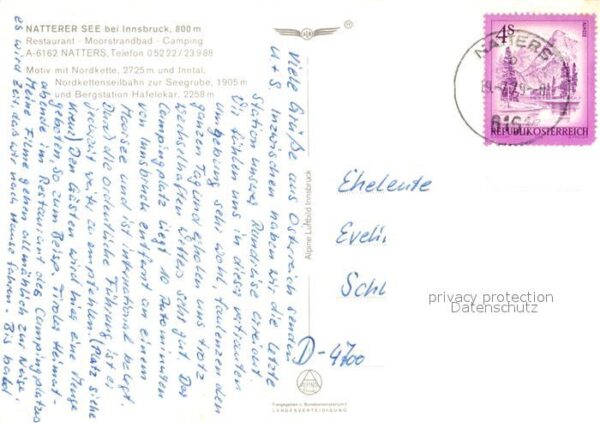 NATTERER SEE bei Innsbruck, 800 m
Restaurant · Moorstrandbad · Camping
A-6162 NATTERS, Telefon 05222/23988
Motiv mit Nordkette, 2725 m und Inntal,
Nordkettenseilbahn zur Seegrube, 1905 m
und Bergstation Hafelekar, 2258 m
Viele Grüße aus Österreich senden
U + S. Inzwischen haben wir die letzte
Station unserer Rundreise erreicht.
Wir fühlen uns in dieser vertrauten
Umgebung sehr wohl, faulenzen den
ganzen Tag und erholen uns trotz
wechselhaften Wetters sehr gut. Der
Campingplatz liegt 10 Autominuten
von Innsbruck entfernt an einem
Moorsee und ist international belegt.
Durch die ordentliche Führung ist er
jederzeit weiter zu empfehlen. (Platz siehe
Den Gästen wird hier eine Menge
geboten, so zum Beisp. Tiroler Heimat-
abende im Restaurant des Campingplatzes
Meine Filme gehen allmählich zur Neige.
es wird Zeit, daß wir nach Hause fahren. Bis bald
Alpine Luftbild Innsbruck
Freigegeben v. Bundesministerium f.
LANDESVERTEIDIGUNG
4S
REPUBLIK ÖSTERREICH
NATTERS
Eheleute
Eveli
Schl
D-4700
privacy protection
Datenschutz